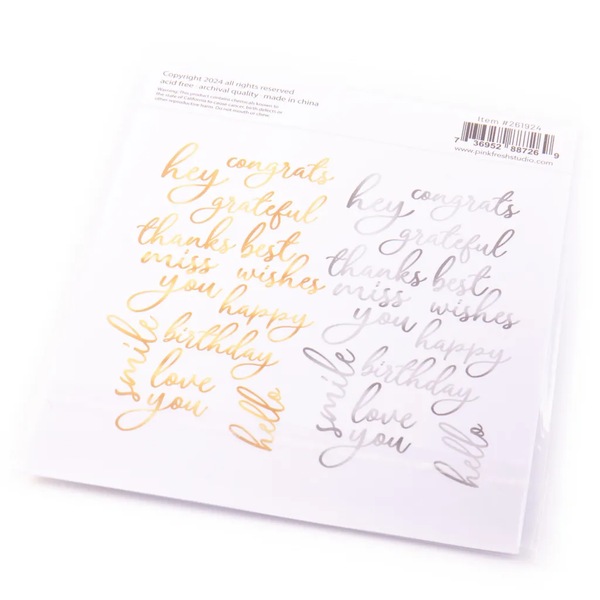 Copyright 2024 all rights reserved
acid free · archival quality · made in china
Warning: This product contains chemicals known to
the state of California to cause cancer, birth defects or
other reproductive harm. Do not mouth or chew.
Item #261924
7 36952 88726 9
www.pinkfreshstudio.com
hey congrats
grateful
thanks best
miss wishes
you happy
smile birthday
love
you hello
hey congrats
grateful
thanks best
miss wishes
you happy
smile birthday
love
you hello